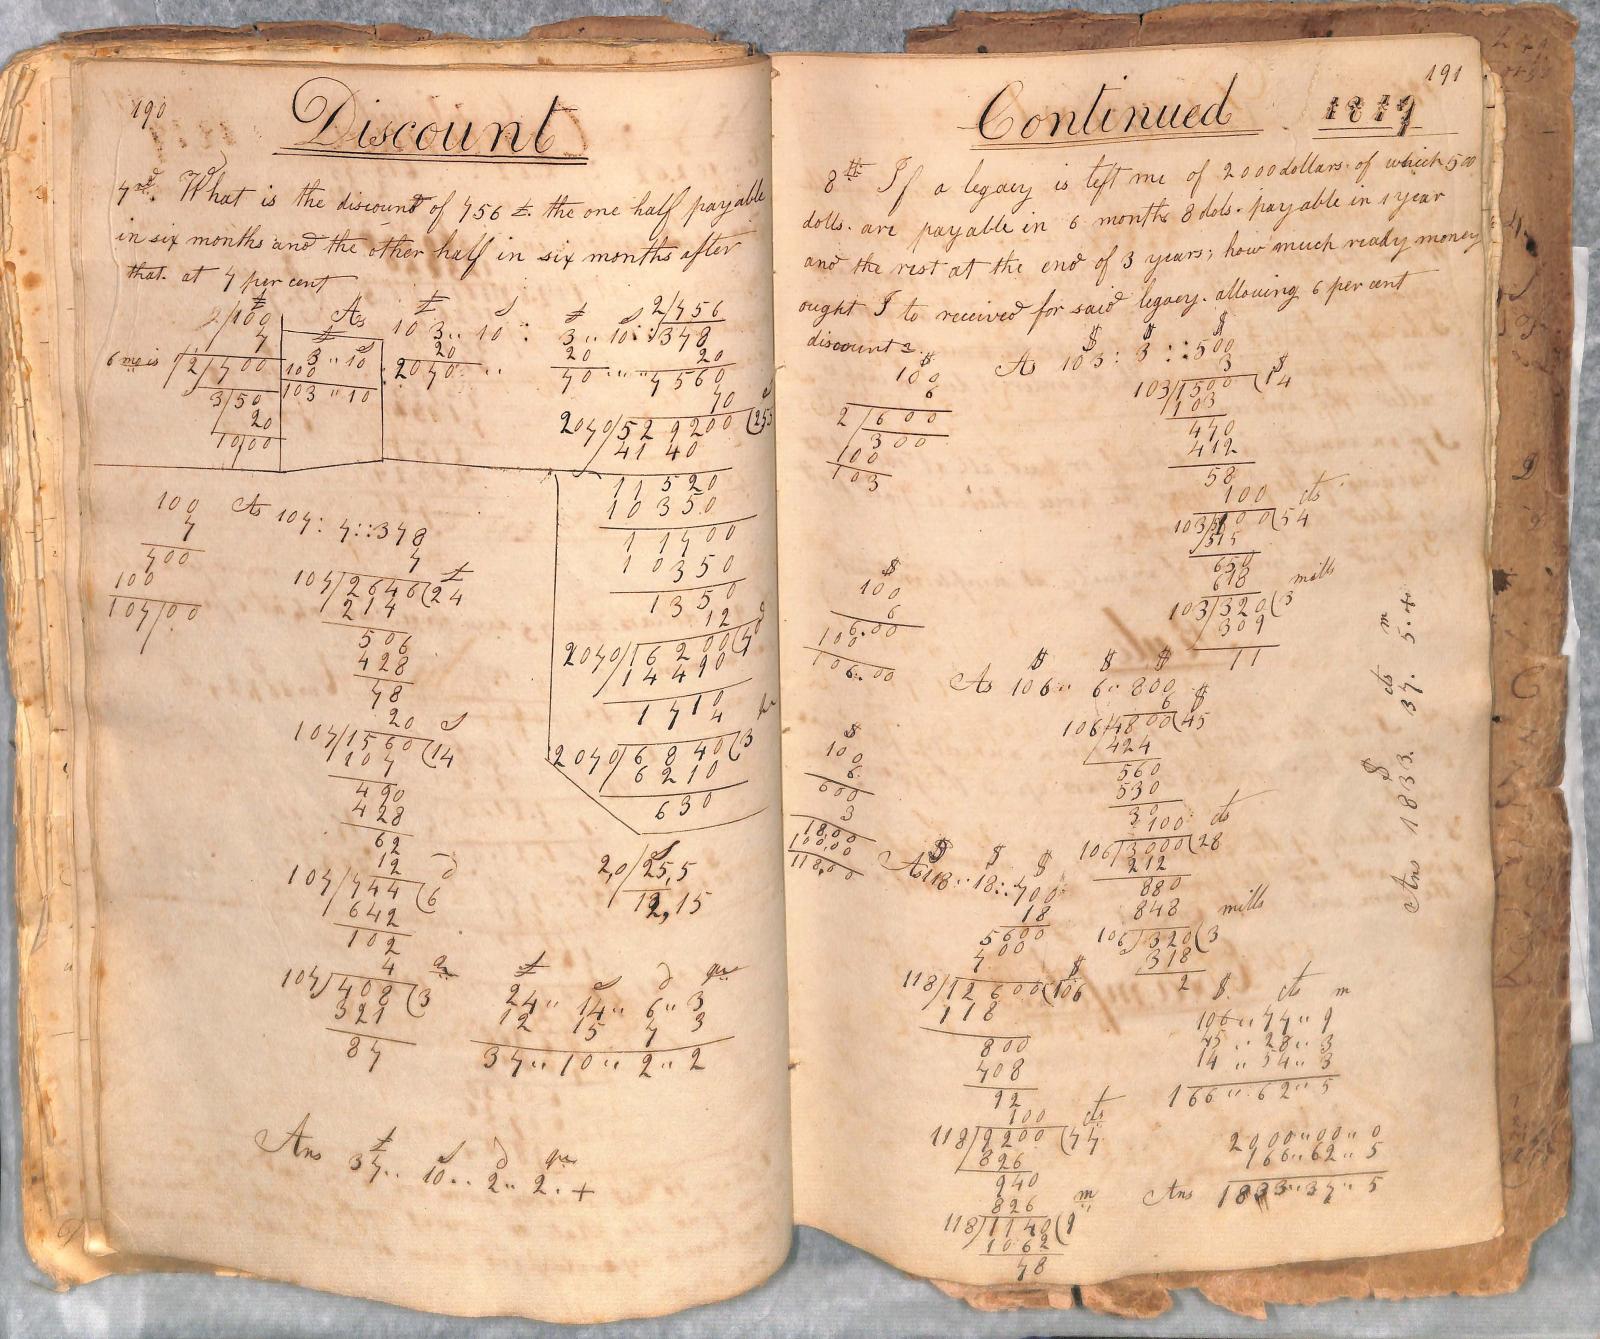 190
Discount
7th. What is the discount of 756 £. the one half payable
in six months and the other half in six months after
that. at 7 per cent
2/100 £
7
6 mo is 1/2/700
3/50
20
10/00
As
£ s
3 " 10
100
103 " 10
£ s £ s
103 .. 10 : 3 .. 10 ::
2/756
378
20 20 20
2070 .. 70 " " 7560
70
2070/529200(255 s
4140
11520
10350
11700
10350
1350
12 d
2070/16200(7
14490
1710
4 qr
2070/6840(3
6210
630
100
7
700
100
107/00
As 107 : 7 :: 378
7 £
107/2646(24
214
506
428
78
20 s
107/1560(14
107
490
428
62
12 d
107/744(6
642
102
4 qr
107/408(3
321
87
2,0/25,5
12,15
£ s d qr
24 " 14 " 6 " 3
12 15 7 3
37 " 10 " 2 " 2
£ s d qr
Ans 37 .. 10 .. 2 .. 2 . +
191
Continued 1819
8th If a legacy is left me of 2000 dollars. of which 500
dolls. are payable in 6 months 8 dols. payable in 1 year
and the rest at the end of 3 years; how much ready money
ought I to received for said legacy. allowing 6 per cent
discount
$
100
6
2/600
300
100
103
$ $ $
As 103 : 3 :: 500
3 $
103/1500(14
103
470
412
58
100 cts
103/5800(54
515
650
618 mills
103/320(3
309
11
$
100
6
6.00
100
106.00
$ $ $
As 106 " 6 " 800
6 $
106/4800(45
424
560
530
30
100 cts
106/3000(28
212
880
848 mills
106/320(3
318
2
$
100
6
600
3
18,00
100,00
118,00
$ $ $
As 118 .. 18 :: 700
18
5600
700 $
118/12600(106
118
800
708
92
100 cts
118/9200(77
826
940
826 m
118/1140(9
1062
78
$ cts m
106 " 77 " 9
45 " 28 " 3
14 " 54 " 3
166 " 62 " 5
2000 " 00 " 0
166 " 62 " 5
Ans 1833 " 37 " 5
$ cts m
Ans 1833. 37. 5. +